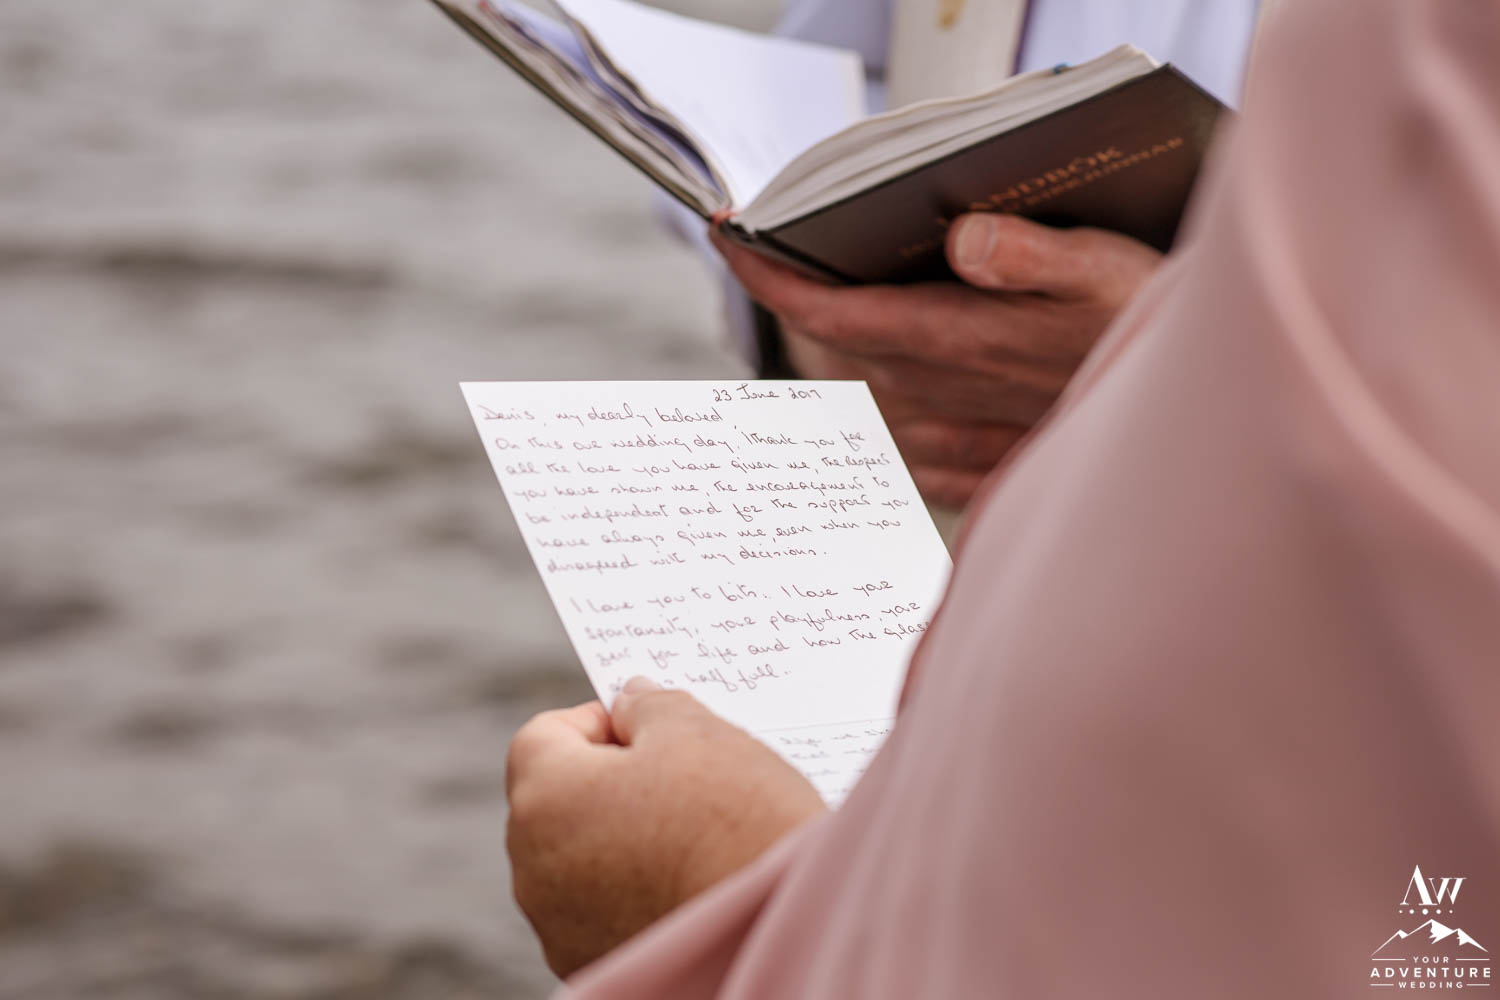 HANDBÓK
ÍSLENSKU KIRKJUNNAR
23 June 2017
Denis, my dearly beloved,
On this our wedding day, I thank you for
all the love you have given me, the respect
you have shown me, the encouragement to
be independent and for the support you
have always given me, even when you
disagreed with my decisions.
I love you to bits. I love your
spontaneity, your playfulness, your
zest for life and how the glass
half full.
life we
that
AW
YOUR
ADVENTURE
WEDDING